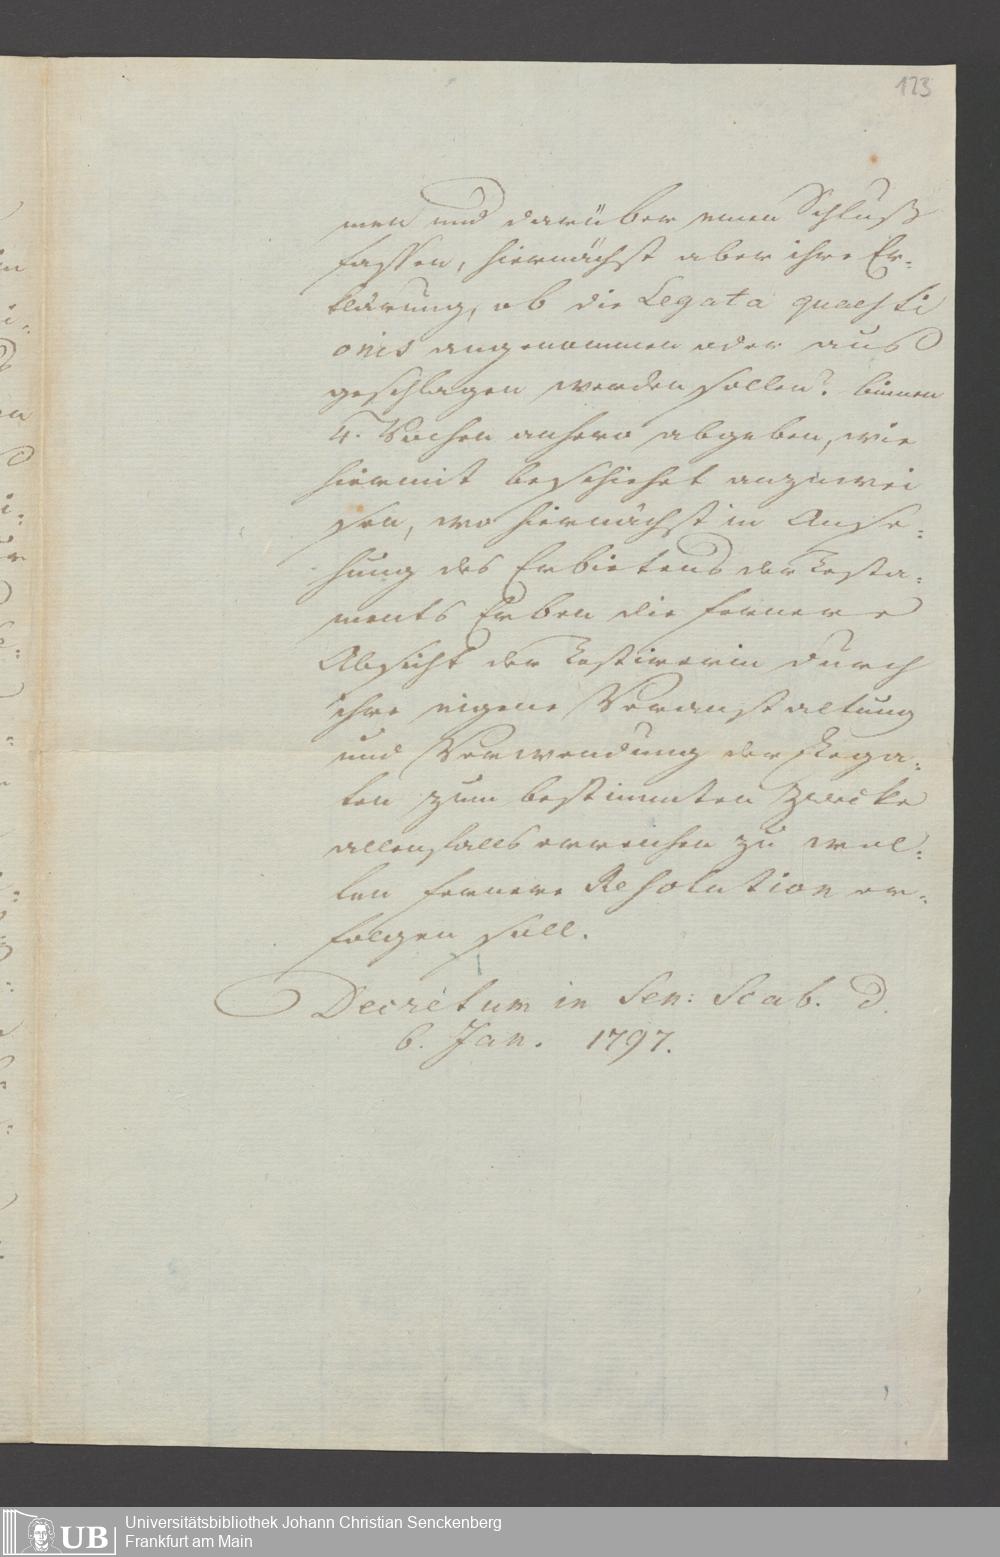 123
men und darüber einen Schluß
fassen, hiernächst aber ihre Er-
klärung, ob die Legata quaesti
onis angenommen oder aus
geschlagen werden sollen? binnen
4. Wochen anhero abgeben, wie
hiermit beschiehet anzuwei
sen, wo hiernächst in Anse-
hung des Erbietens der Testa-
ments Erben die fernere
Absicht der Testirerin durch
ihre eigene Veranstaltung
und Verwendung der Lega-
ten zum bestimmten Zwecke
allenfalls erreichen zu wol-
len fernere Resolution er-
folgen soll.
Decretum in Sen: Scab. d.
6. Jan. 1797.
UB Universitätsbibliothek Johann Christian Senckenberg
Frankfurt am Main